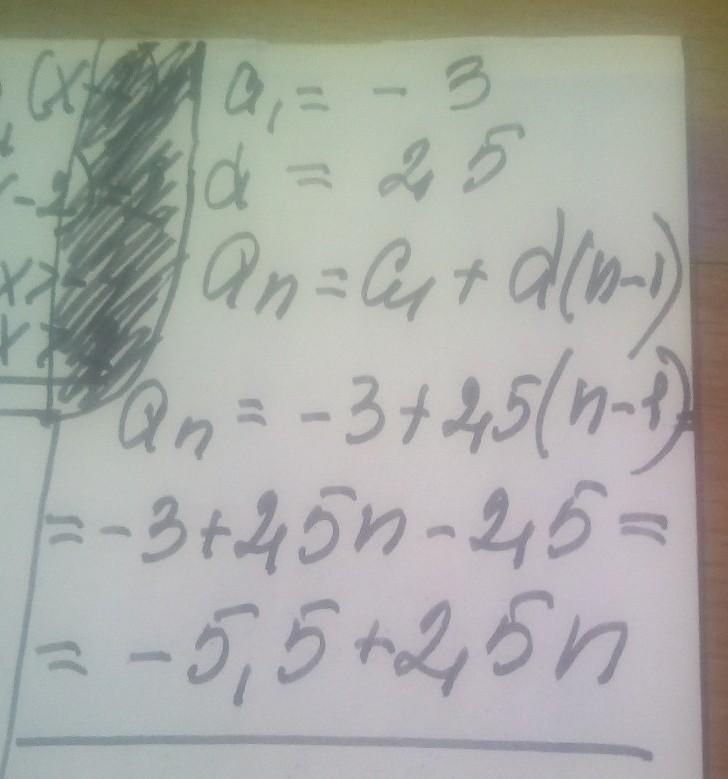 (x-
a₁ = - 3
-2)
d = 2,5
x>
aₙ = a₁ + d(n-1)
x>
aₙ = -3+2,5(n-1)=
=-3+2,5n-2,5=
= -5,5+2,5n